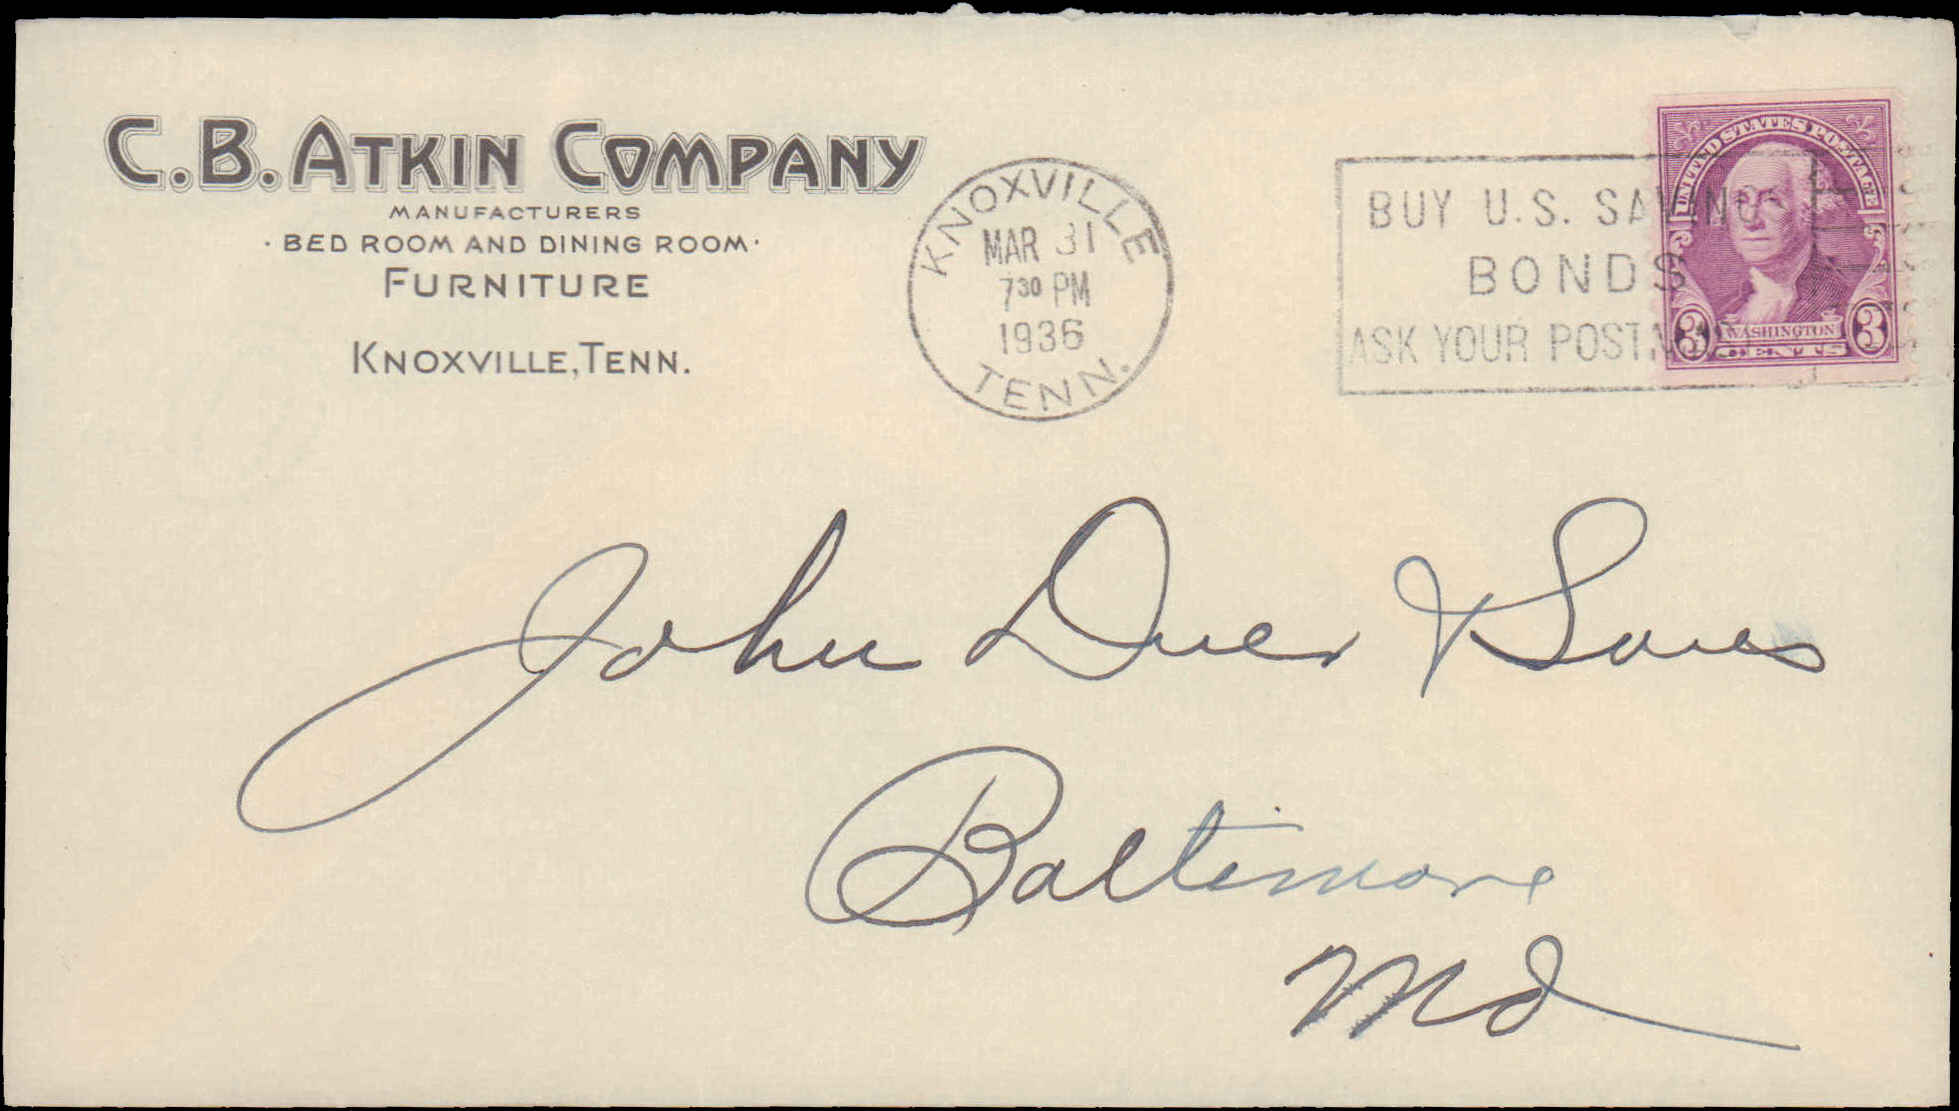 C.B. ATKIN COMPANY
MANUFACTURERS
· BED ROOM AND DINING ROOM ·
FURNITURE
KNOXVILLE, TENN.
KNOXVILLE
MAR 31
7 30 PM
1936
TENN.
BUY U.S. SAVING
BONDS
ASK YOUR
UNITED STATES POSTAGE
WASHINGTON
3 CENTS 3
John Duer & Sons
Baltimore
Md